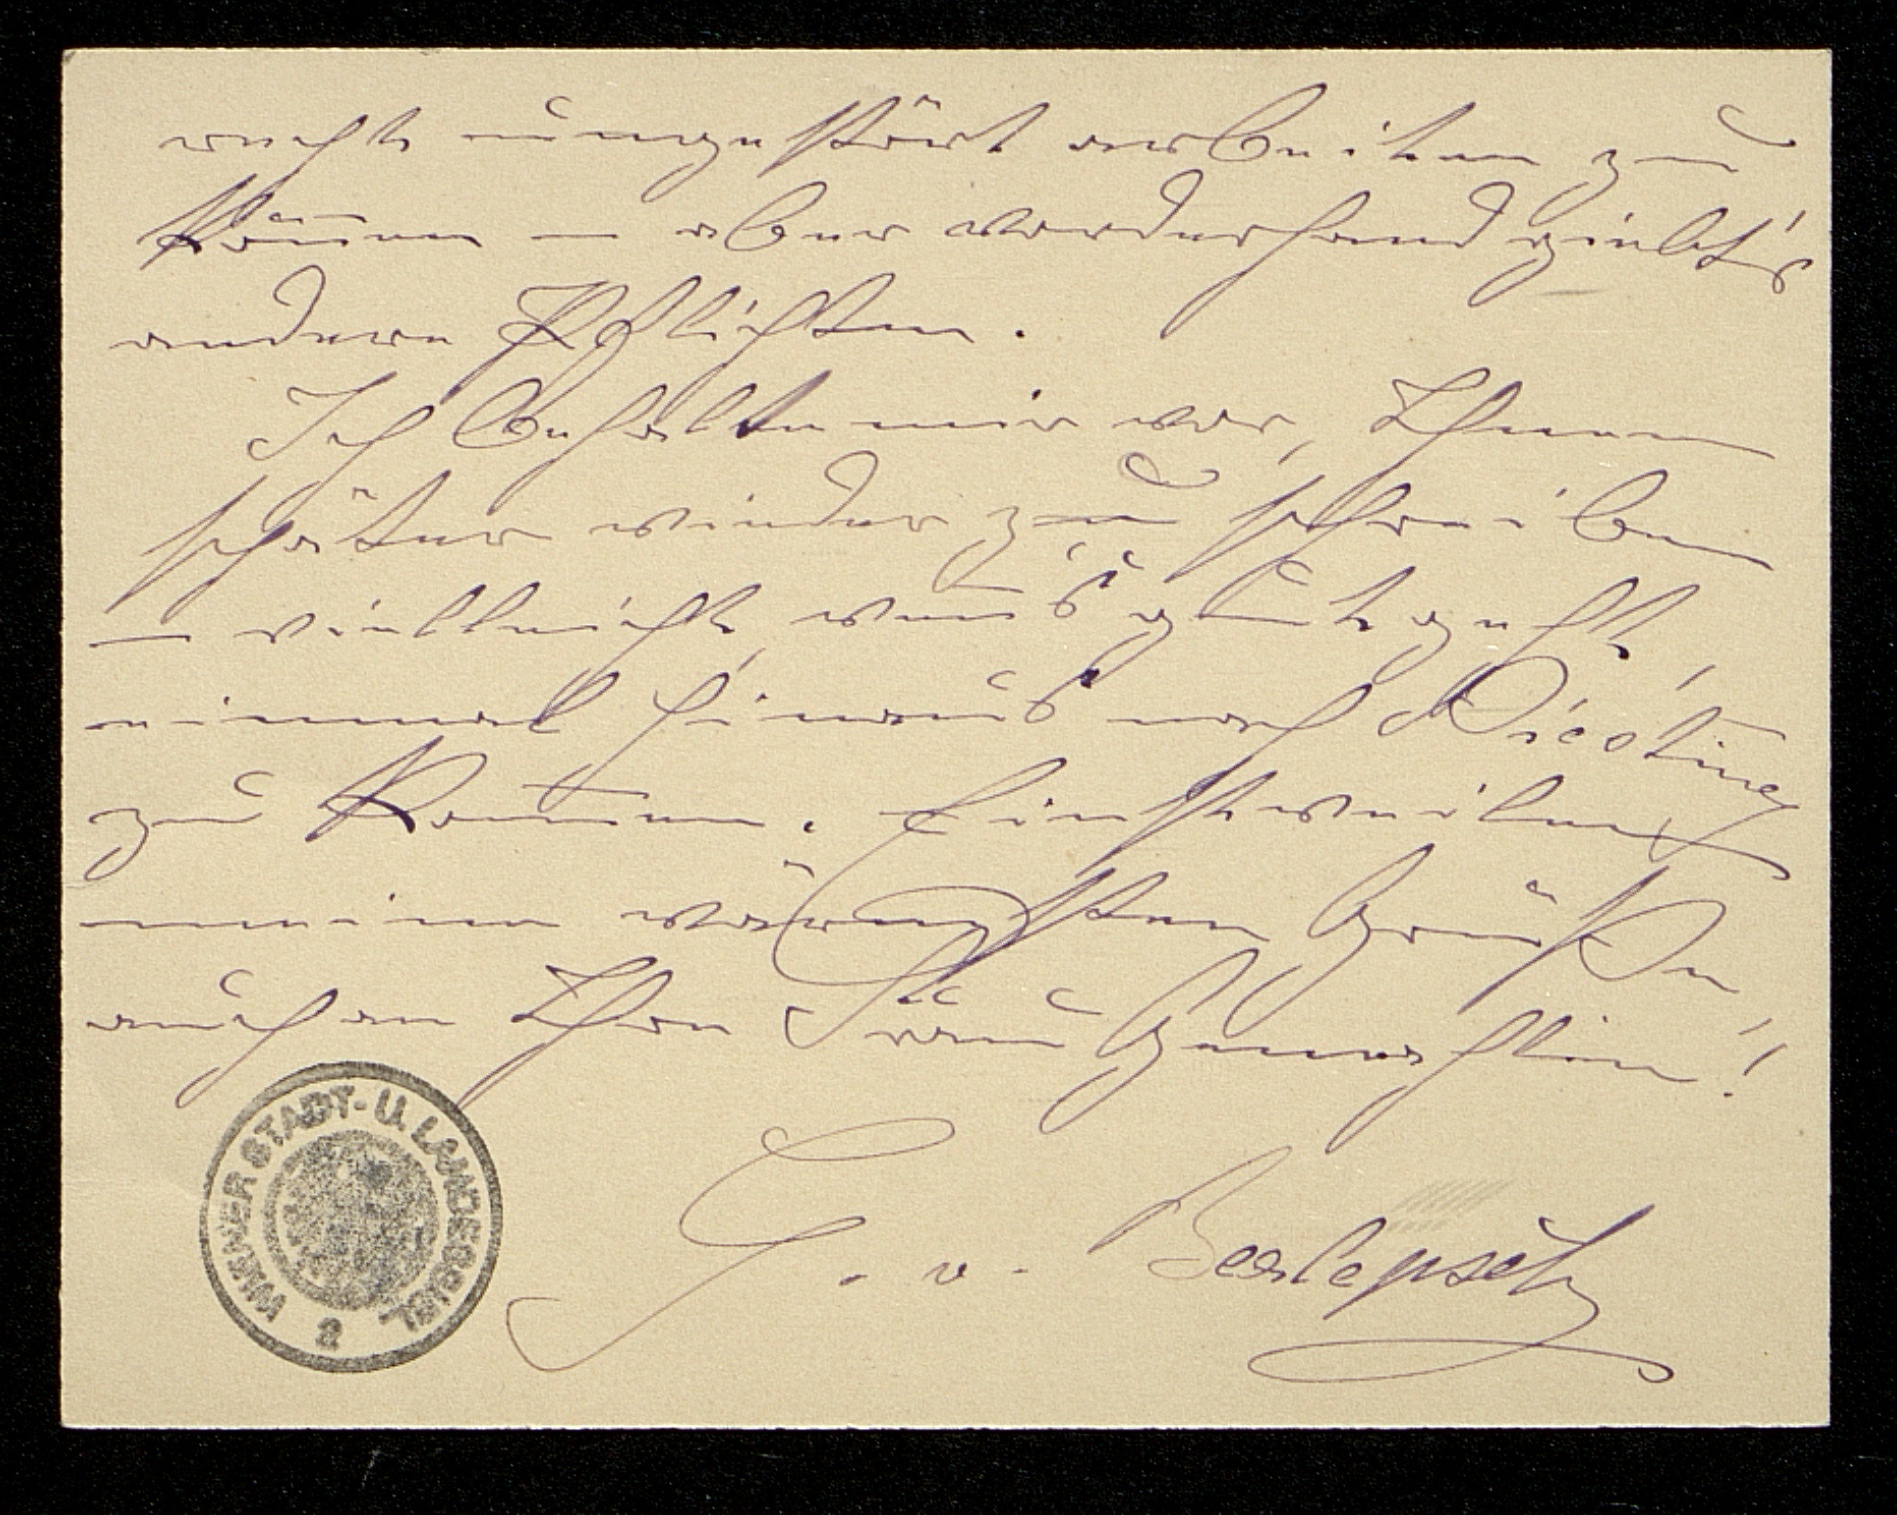 recht ungestört arbeiten zu
können – aber vorderhand giebt's
andere Pflichten.
Ich behalte mir vor, Ihnen
später wieder zu schreiben
– vielleicht, wenn's gut geht,
einmal hinaus nach Piesting
zu kommen. Einstweilen
meine wärmsten Grüße
auch an Ihre Frau Gemahlin!
G. v. Berlepsch
WIENER STADT- U. LANDESBIBL.
2